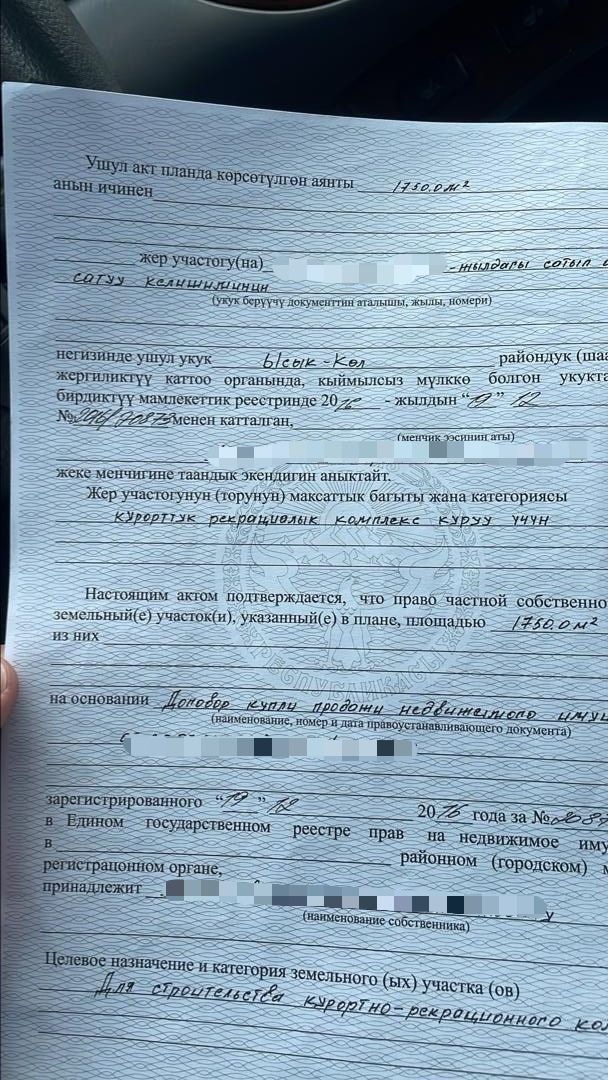 Ушул акт планда көрсөтүлгөн аянты 1750.0 м²
анын ичинен
жер участогу(на) -жылдагы сатып
сатуу келишиминин
(укук берүүчү документтин аталышы, жылы, номери)
негизинде ушул укук Ысык-Көл райондук (шаа
жергиликтүү каттоо органында, кыймылсыз мүлккө болгон укукта
бирдиктүү мамлекеттик реестринде 2016 - жылдын “19” 12
№ менен катталган,
(менчик ээсинин аты)
жеке менчигине таандык экендигин аныктайт.
Жер участогунун (торунун) максаттык багыты жана категориясы
курорттук рекрациалык комплекс куруу үчүн
Настоящим актом подтверждается, что право частной собственно
земельный(е) участок(и), указанный(е) в плане, площадью 1750.0 м²
из них
РЕСПУБЛИКАСЫ
на основании Договор купли продажи недвижимого имущ
(наименование, номер и дата правоустанавливающего документа)
зарегистрированного “19” 12 2016 года за №
в Едином государственном реестре прав на недвижимое иму
в районном (городском) м
регистрацонном органе,
принадлежит
(наименование собственника)
Целевое назначение и категория земельного (ых) участка (ов)
Для строительства курортно-рекрационного ком